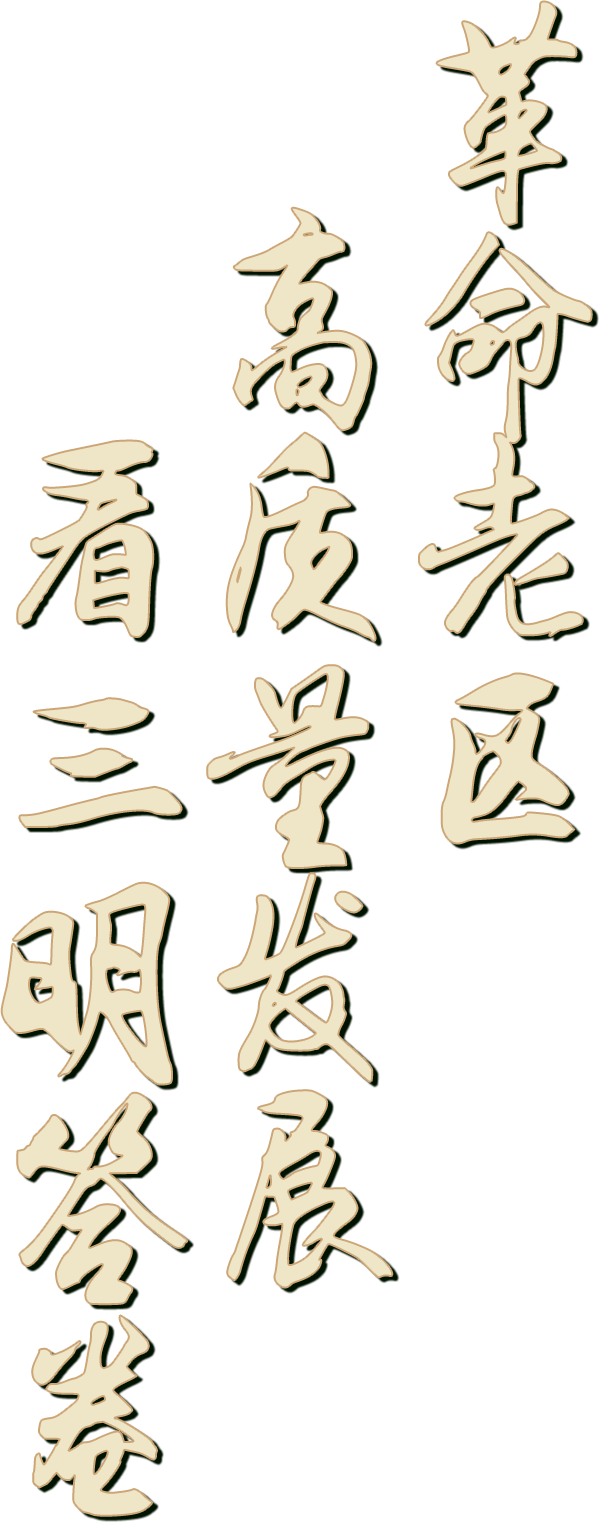 革命老区
高质量发展
看三明答卷